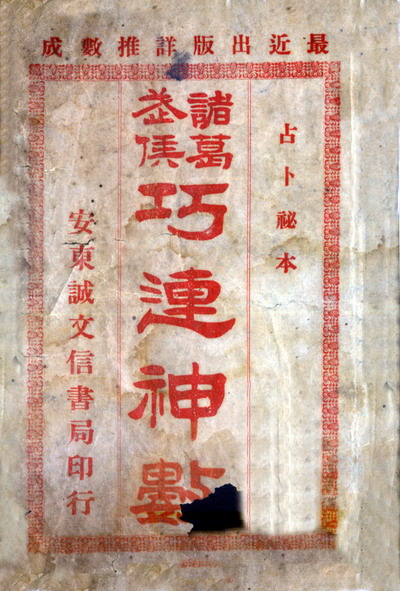 最近出版詳推數成
占卜祕本
諸葛武侯
巧連神數
安東誠文信書局印行